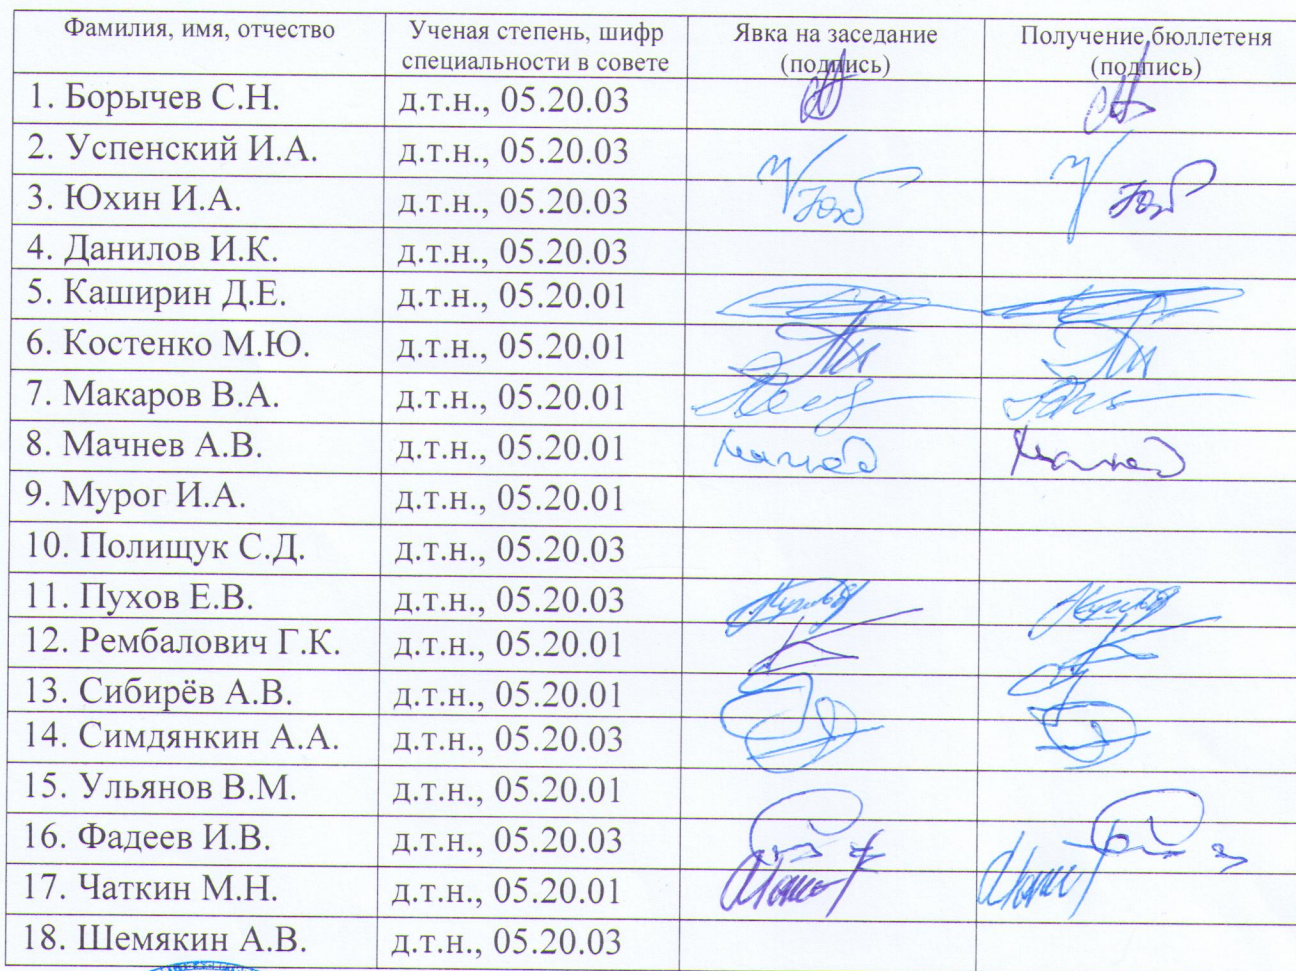 Фамилия, имя, отчество
Ученая степень, шифр специальности в совете
Явка на заседание (подпись)
Получение бюллетеня (подпись)
1. Борычев С.Н. д.т.н., 05.20.03
2. Успенский И.А. д.т.н., 05.20.03
3. Юхин И.А. д.т.н., 05.20.03
4. Данилов И.К. д.т.н., 05.20.03
5. Каширин Д.Е. д.т.н., 05.20.01
6. Костенко М.Ю. д.т.н., 05.20.01
7. Макаров В.А. д.т.н., 05.20.01
8. Мачнев А.В. д.т.н., 05.20.01
9. Мурог И.А. д.т.н., 05.20.01
10. Полищук С.Д. д.т.н., 05.20.03
11. Пухов Е.В. д.т.н., 05.20.03
12. Рембалович Г.К. д.т.н., 05.20.01
13. Сибирёв А.В. д.т.н., 05.20.01
14. Симдянкин А.А. д.т.н., 05.20.03
15. Ульянов В.М. д.т.н., 05.20.01
16. Фадеев И.В. д.т.н., 05.20.03
17. Чаткин М.Н. д.т.н., 05.20.01
18. Шемякин А.В. д.т.н., 05.20.03